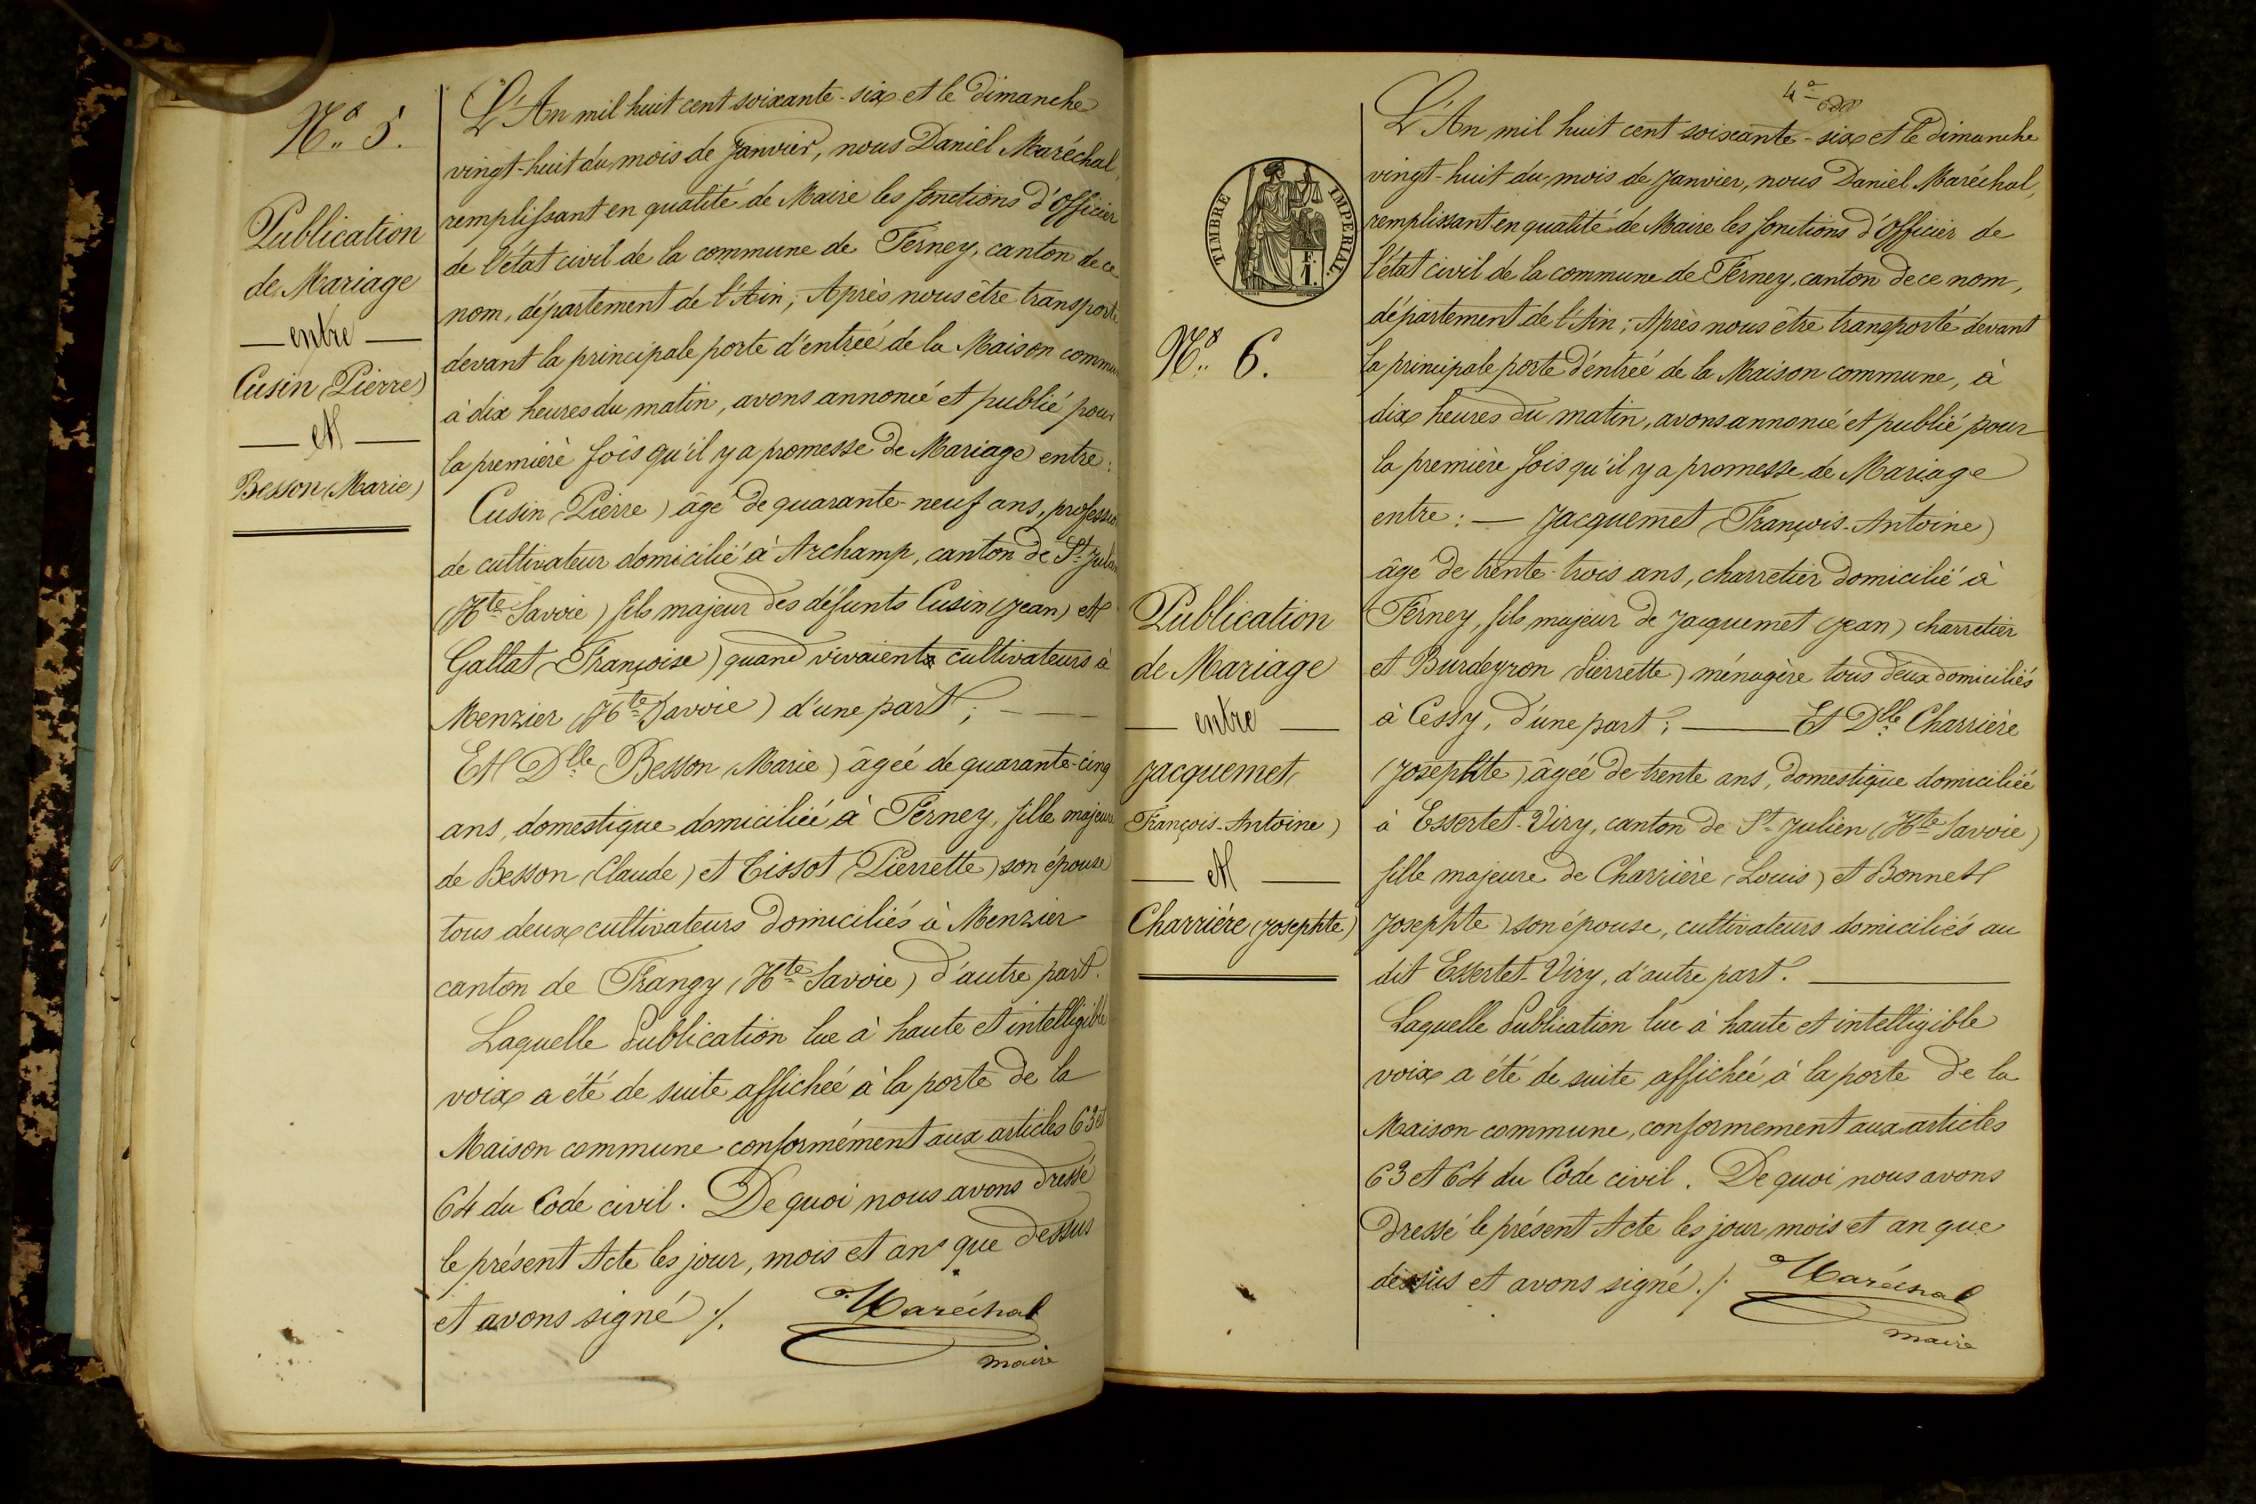 N° 5.
Publication
de Mariage
— entre —
Cusin (Pierre)
— et —
Besson (Marie)
L'An mil huit cent soixante-six et le dimanche
vingt-huit du mois de Janvier, nous Daniel Maréchal,
remplissant en qualité de Maire les fonctions d'Officier
de l'état civil de la commune de Ferney, canton de ce
nom, département de l'Ain; Après nous être transporté
devant la principale porte d'entrée de la Maison commune
à dix heures du matin, avons annoncé et publié pour
la première fois qu'il y a promesse de Mariage entre:
Cusin (Pierre) âgé de quarante-neuf ans, profession
de cultivateur domicilié à Archamp, canton de St Julien
(Hte Savoie) fils majeur des défunts Cusin (Jean) et
Gallat (Françoise) quand vivaient cultivateurs à
Menzier (Hte Savoie) d'une part; —
Et Dlle Besson (Marie) âgée de quarante-cinq
ans, domestique domiciliée à Ferney, fille majeure
de Besson (Claude) et Tissot (Pierrette) son épouse
tous deux cultivateurs domiciliés à Menzier
canton de Frangy (Hte Savoie) d'autre part.
Laquelle Publication lue à haute et intelligible
voix a été de suite affichée à la porte de la
Maison commune conformément aux articles 63 et
64 du Code civil. De quoi nous avons dressé
le présent Acte les jour, mois et an que dessus
et avons signé ./.
Maréchal
maire
4e
TIMBRE IMPÉRIAL.
F.
1.
N° 6.
Publication
de Mariage
— entre —
Jacquemet
François-Antoine)
— et —
Charrière (Josephte)
L'An mil huit cent soixante-six et le dimanche
vingt-huit du mois de Janvier, nous Daniel Maréchal,
remplissant en qualité de Maire les fonctions d'Officier de
l'état civil de la commune de Ferney, canton de ce nom,
département de l'Ain; Après nous être transporté devant
la principale porte d'entrée de la Maison commune, à
dix heures du matin, avons annoncé et publié pour
la première fois qu'il y a promesse de Mariage
entre: — Jacquemet (François-Antoine)
âgé de trente-trois ans, charretier domicilié à
Ferney, fils majeur de Jacquemet (Jean) charretier
et Burdeyron (Pierrette) ménagère tous deux domiciliés
à Cessy, d'une part; — Et Dlle Charrière
(Josephte) âgée de trente ans, domestique domiciliée
à Essertet-Viry, canton de St Julien (Hte Savoie)
fille majeure de Charrière (Louis) et Bonnet
Josephte) son épouse, cultivateurs domiciliés au
dit Essertet-Viry, d'autre part. —
Laquelle Publication lue à haute et intelligible
voix a été de suite affichée, à la porte de la
Maison commune, conformement aux articles
63 et 64 du Code civil. De quoi nous avons
dressé le présent Acte les jour, mois et an que
dessus et avons signé ./.
Maréchal
maire